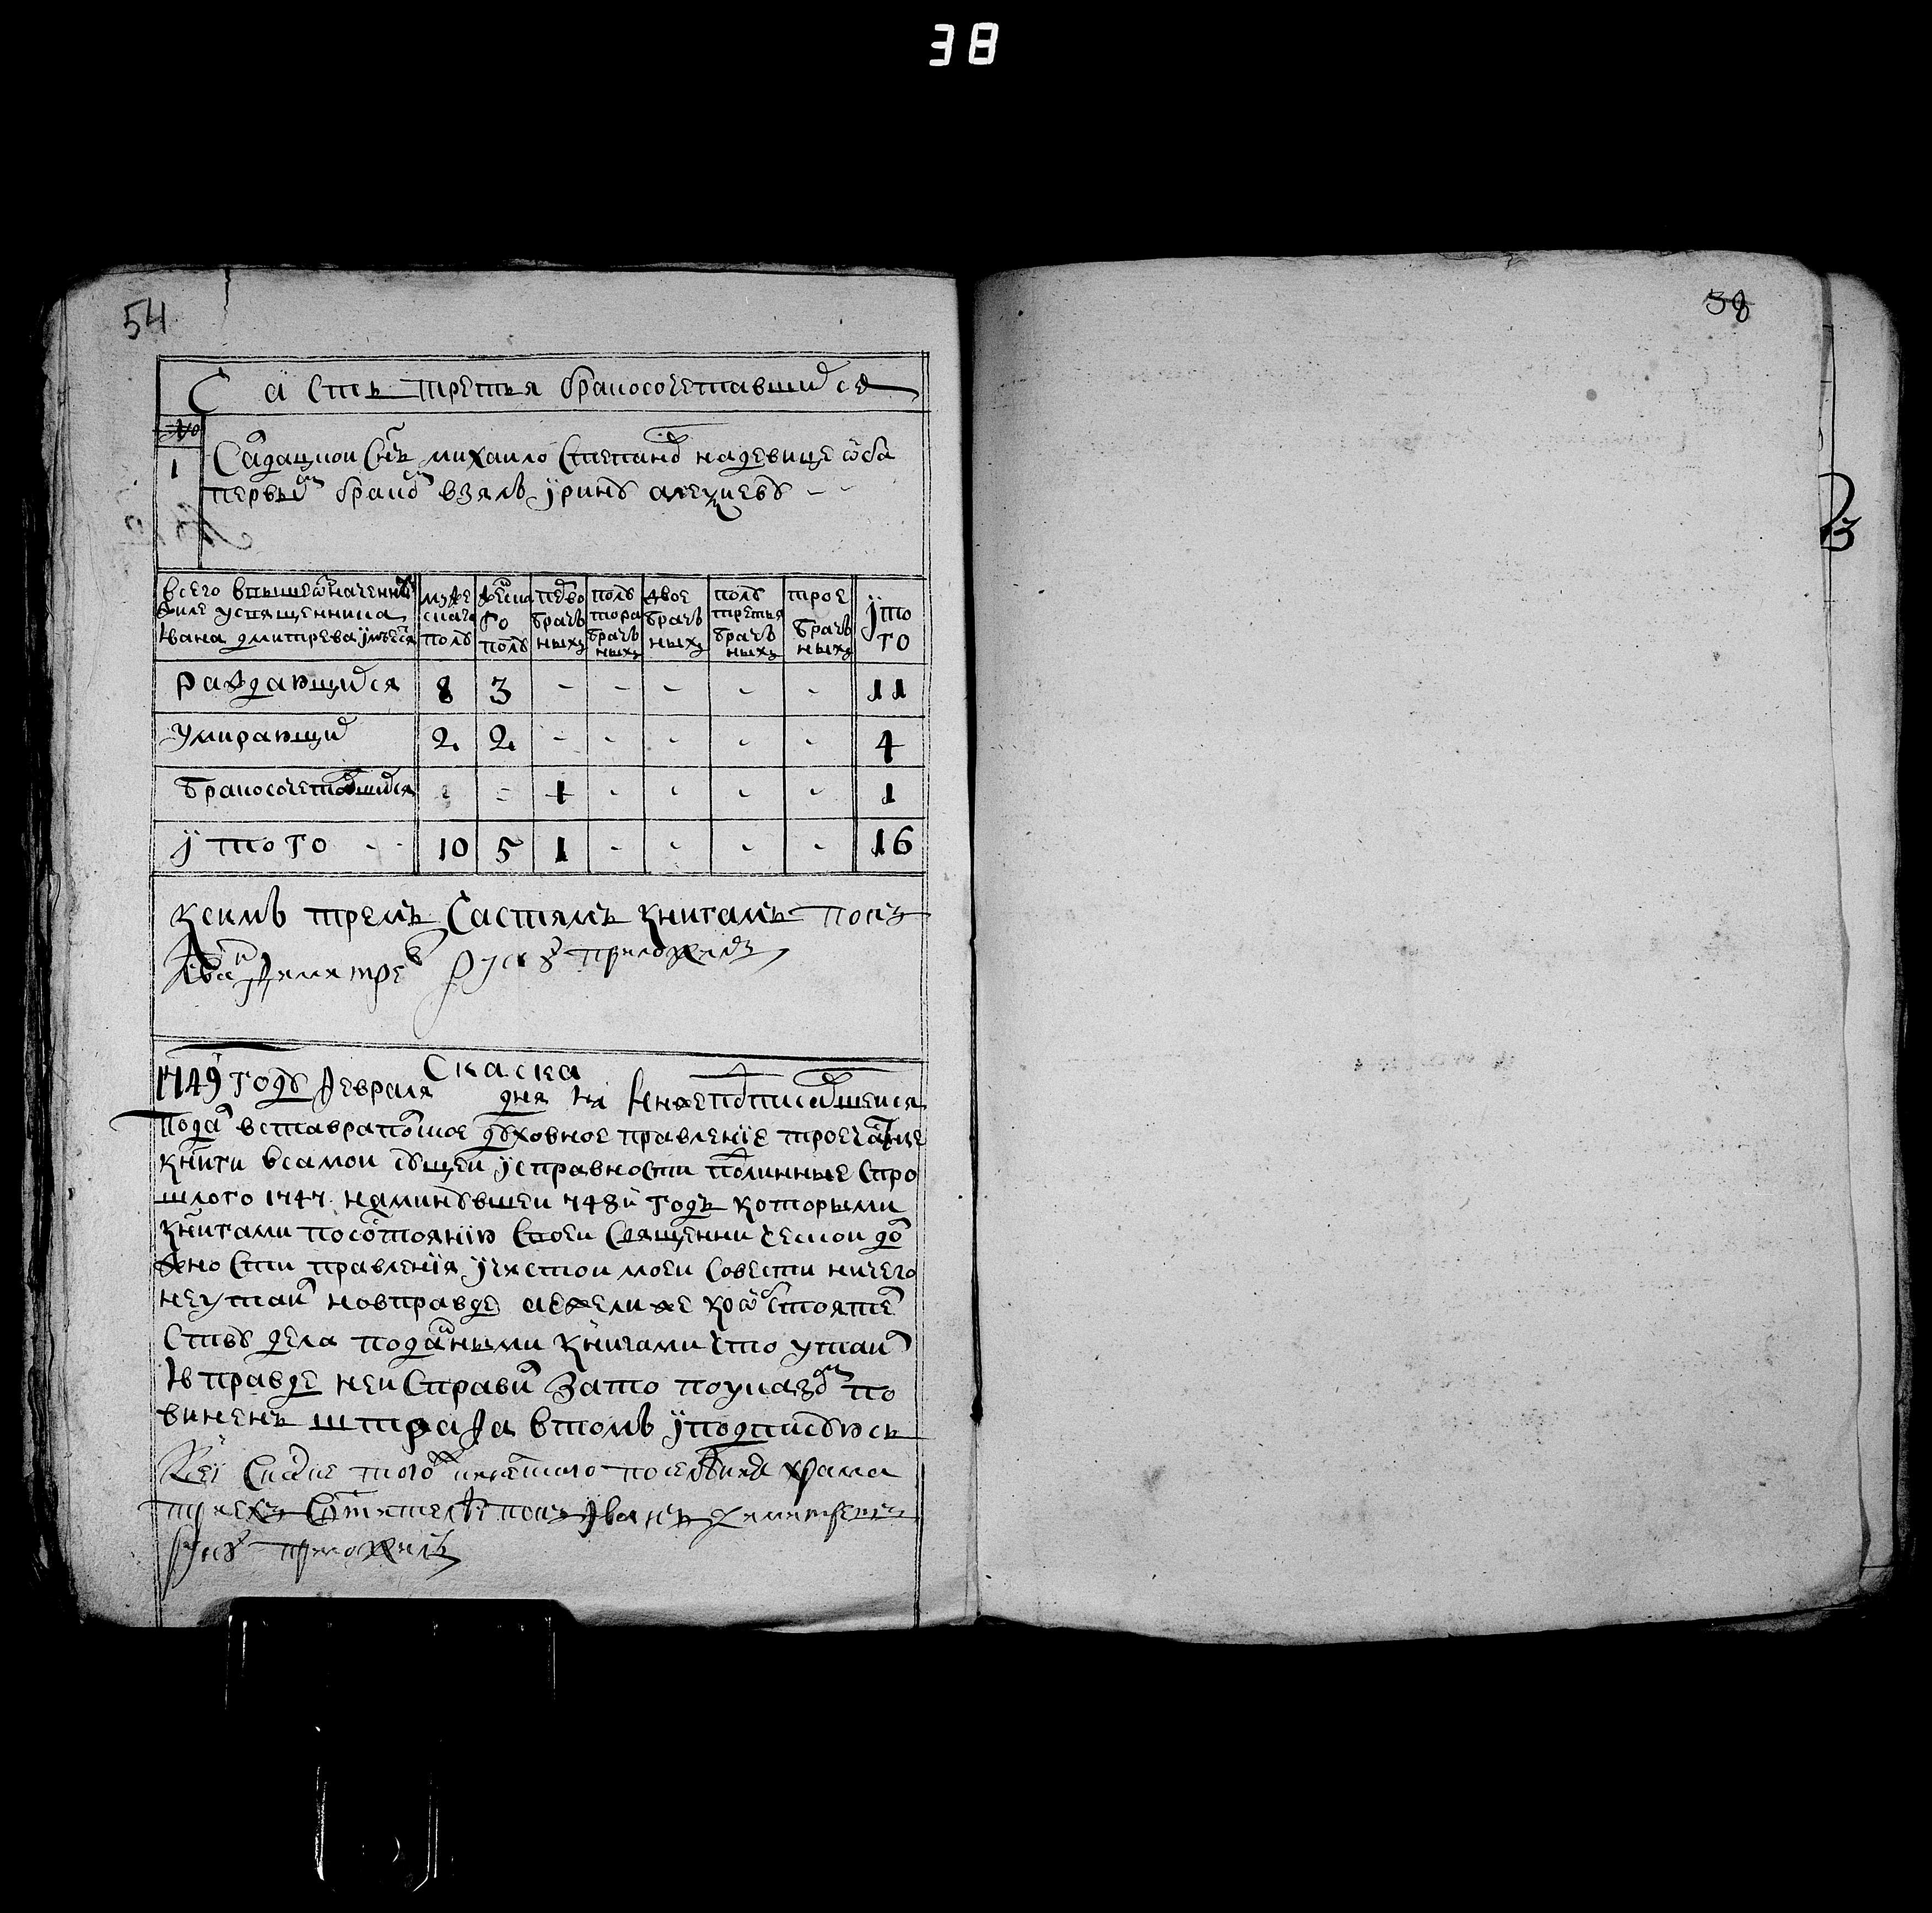 38
54
38
Часть третья бракосочетавшихся
№
1
Салдацкои сынъ михаило степановъ на девице оба
первымъ бракомъ взялъ ирину алексеевъ
всего вышеозначенныхъ
священника
Ивана дмитрева имеется
мужеска полъ
женска го полъ
перво брач ныхъ
полъ тора брач ныхъ
двое брач ныхъ
полъ третья брач ныхъ
трое брач ныхъ
ито го
раждающихся 8 3 - - - - - 11
умирающихъ 2 2 - - - - - 4
бракосочетовшихся - - 1 - - - - 1
итого - - 10 5 1 - - - - 16
к сим трем частямъ книгамъ попъ
Иван Дмитрев руку приложилъ
Скаска
1749 году февраля дня я нижеподписавшеися
подал в ставрапольское духовное правление троечастные
книги в самои сущеи исправности подлинные с про
шлого 1747 на минувшеи 748й годъ которыми
книгами по состоянию своеи священническои дол
жности правления и чистои моеи совести ничего
не утаил но в правде а ежели же
ству дела поданными книгами что утаил
и в правде не исправил за то по указом по
виненъ штрафа в томъ и подписуюсь
К сеи скаске храма
трехъ святителеи попъ Иванъ Дмитревъ
руку приложилъ